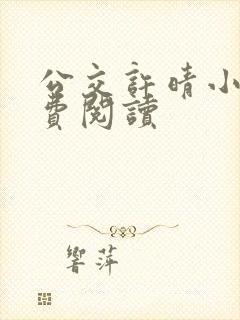 公交許晴小
費閱讀
響萍